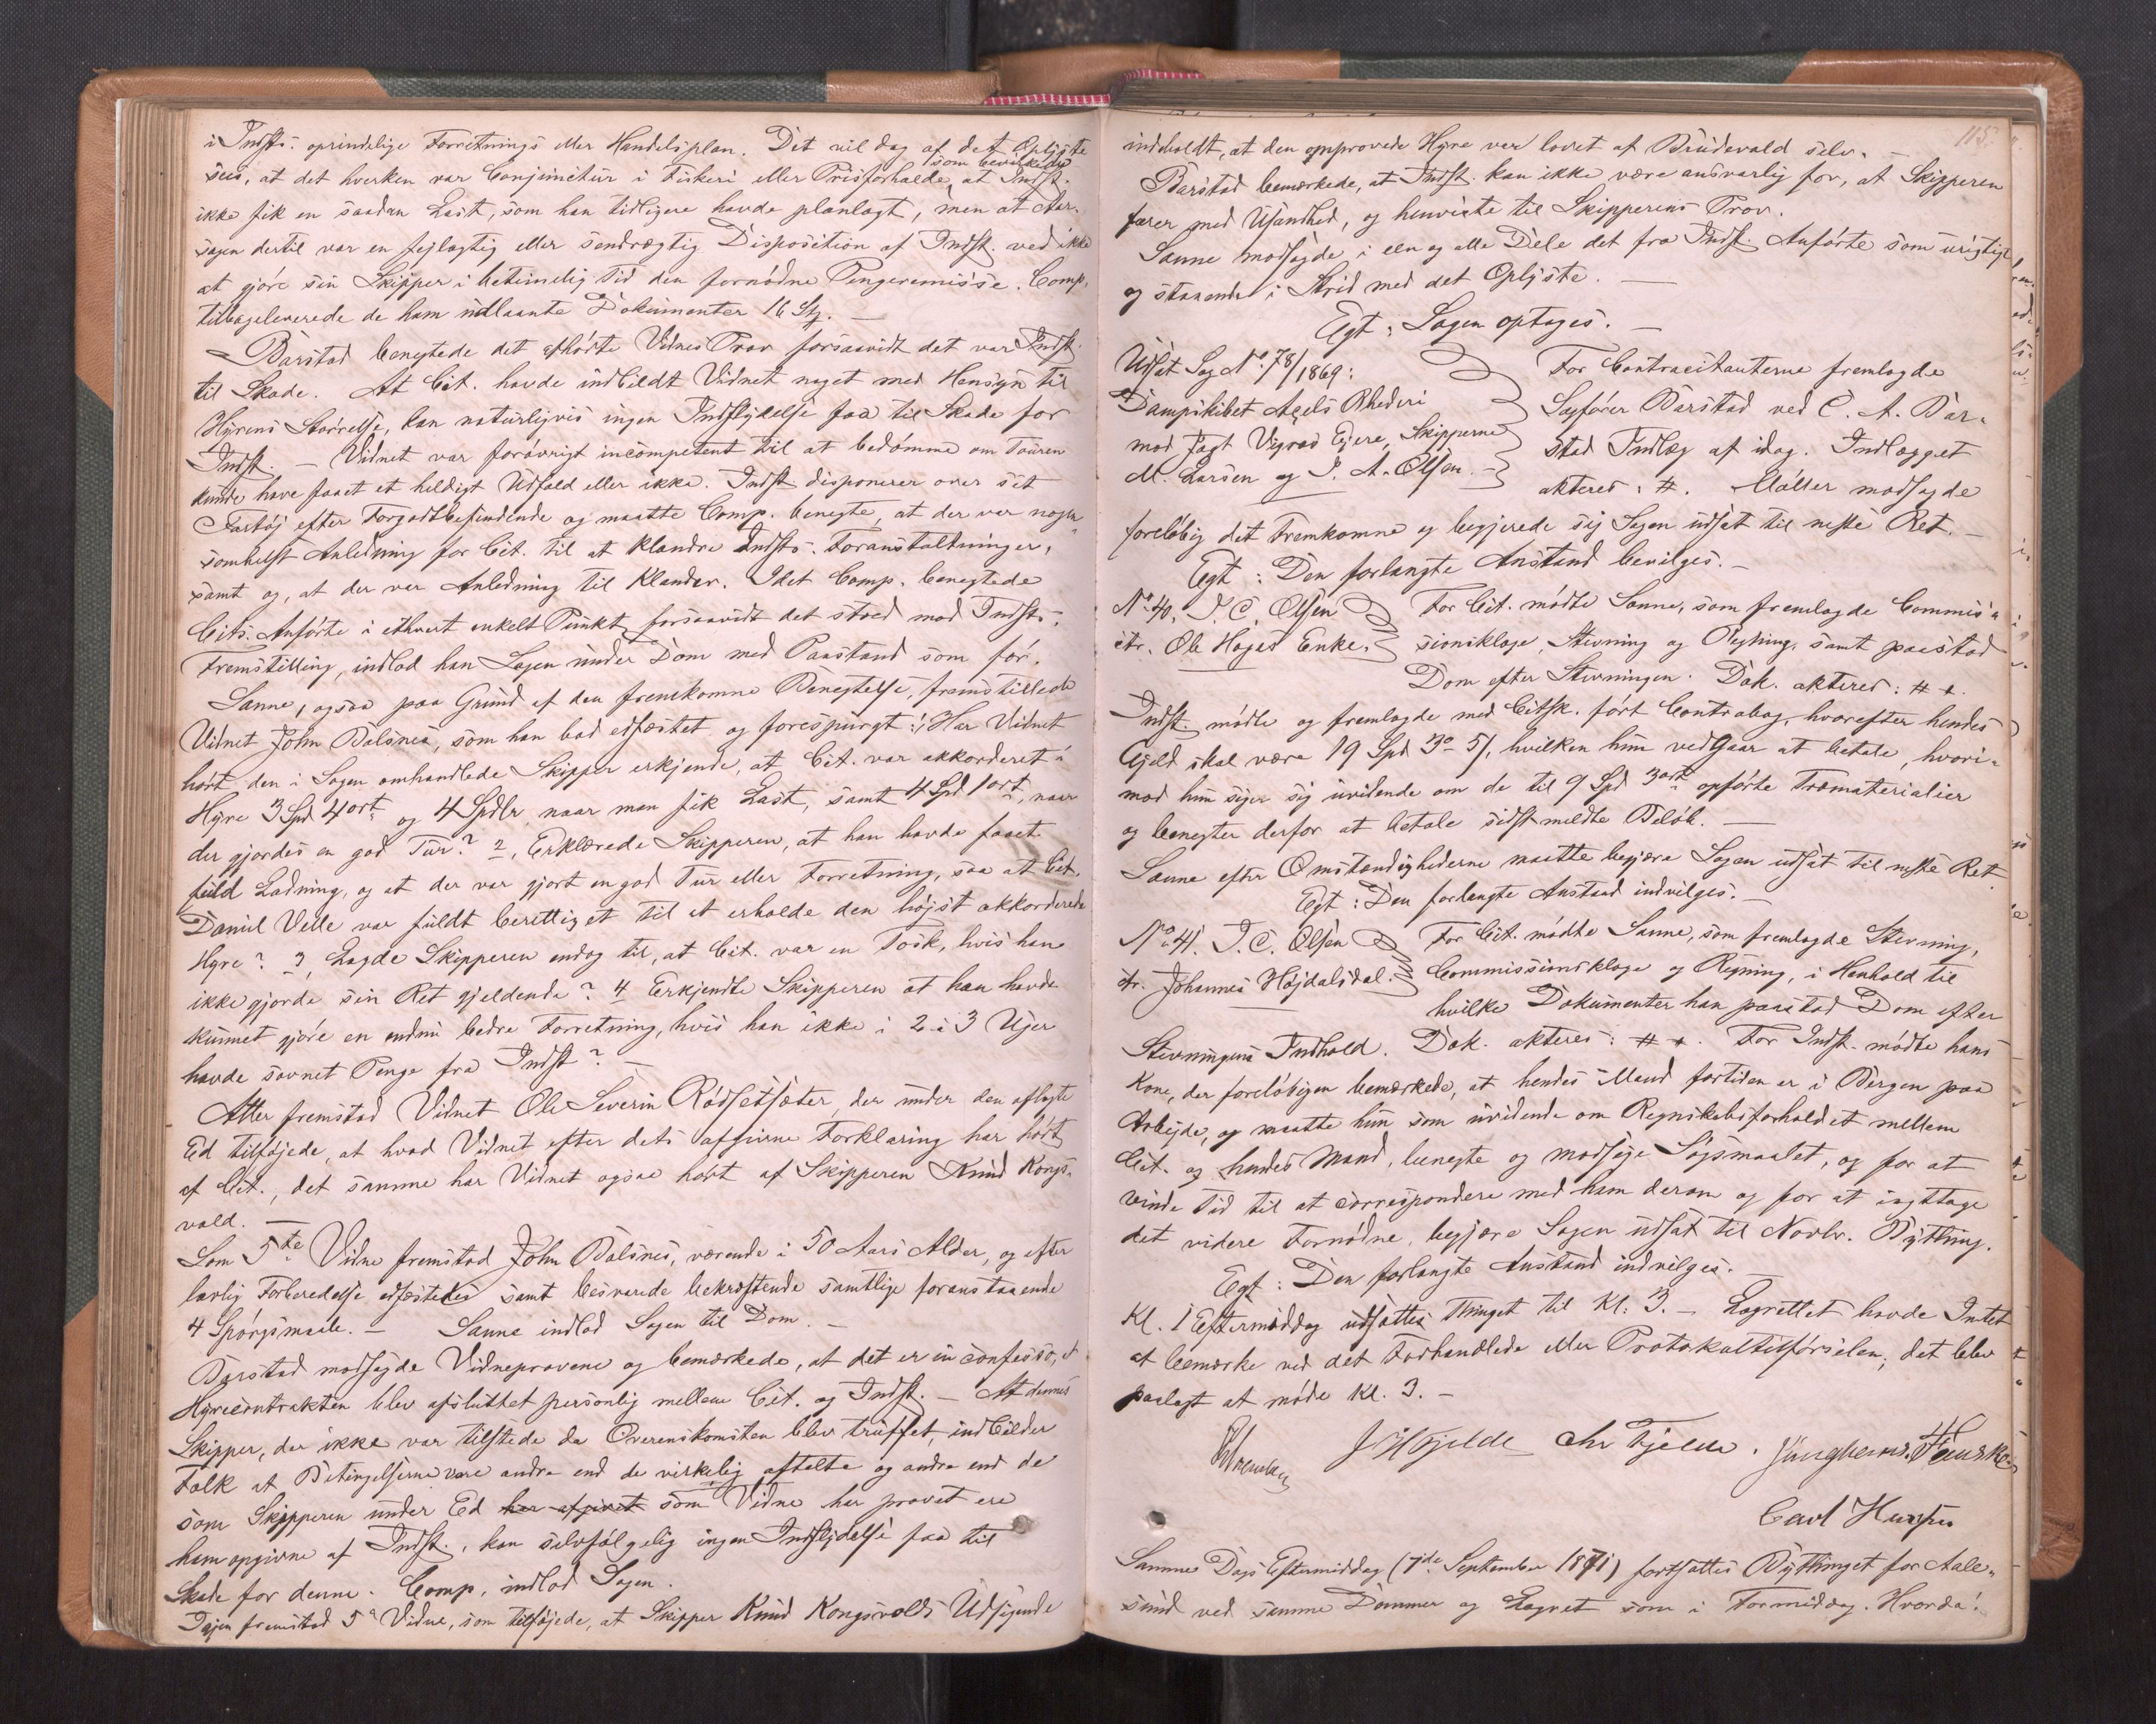 i Indsts. oprindelige Forretnings eller Handelsplan. Det vil dog af det Oplyste
sees, at det hverken var Conjunctur i Fiskeri eller Prisforholde som bevirkede, at Indst.
ikke fik en saadan Last, som han tidligere havde planlagt, men at Aar-
sagen dertil var en fejlagtig eller sendrægtig Disposition af Indst. ved ikke
at gjöre sin Skipper i betimelig Tid den fornödne Pengeremisse. Comp.
tilbageleverede de ham udlaante Dokumenter 16 Stz. —
Barstad benegtede det afhörte Vidnes Prov forsaavidt det var Indst.
til Skade. At Cit. havde indbildt Vidnet noget med Hensyn til
Hyrens Störrelse, kan naturligvis ingen Indflydelse faa til Skade for
Indst. — Vidnet var forövrigt incompetent til at bedömme om Touren
kunde have faaet et heldigt Udfald eller ikke. Indst disponerer over sit
Fartöj efter Forgodtbefindende og maatte Comp. benegte, at der var nogen-
somhelst Anledning for Cit. til at klandre Indsts. Foranstaltninger,
samt og, at der var Anledning til Klander. Idet Comp. benegtede
Cits. Anförte i ethvert enkelt Punkt forsaavidt det stred mod Indsts.
Fremstilling, indlod han Sagen under Dom med Paastand som för.
Sanne, ogsaa paa Grund af den fremkomne Benegtelse, fremstillede
Vidnet John Balsnes, som han bad edfæstet og forespurgt: 1 Har Vidnet
hört den i Sagen omhandlede Skipper erkjende, at Cit. var akkorderet i
Hyre 3 Spd 4 ort og 4 Spdlr naar man fik Last, samt 4 Spd 1 ort, naar
der gjordes en god Tur? 2, Erklærede Skipperen, at han havde faaet
fuld Ladning, og at der var gjort en god Tur eller Forretning, saa at Cit.
Daniel Velle var fuldt berettiget til at erholde den höjst akkorderede
Hyre? 3, Lagde Skipperen endog til, at Cit. var en Tosk, hvis han
ikke gjorde sin Ret gjeldende? 4 Erkjendte Skipperen at han havde
kunnet gjöre en endnu bedre Forretning, hvis han ikke i 2 à 3 Uger
havde savnet Penge fra Indst? —
Atter fremstod Vidnet Ole Severin Rödsetsæter, der under den aflagte
Ed tilföjede, at hvad Vidnet efter dets afgivne Forklaring har hört
af Cit., det samme har Vidnet ogsaa hört af Skipperen Knud Kongs-
vold. —
Som 5te Vidne fremstod John Balsnes, værende i 50 Aars Alder, og efter
lovlig Forberedelse edfæstedes samt besvarede bekræftende samtlige foranstaaende
4 Spörgsmaale. — Sanne indlod Sagen til Dom. —
Barstad modsagde Vidneprovene og bemærkede, at det er in confesso, at
Hyrecontrakten blev afsluttet personlig mellem Cit. og Indst. — At dennes
Skipper, der ikke var tilstede da Overenskomsten blev truffet, indbilder
Folk at Betingelserne vare andre end de virkelig aftalte og andre end de
som Skipperen under Ed har afgivet som Vidne har provet ere
ham opgivne af Indst., kan selvfölgelig ingen Indflydelse faa til
Skade for denne. Comp. indlod Sagen.
Igjen fremstod 5te Vidne, som tilföjede, at Skipper Knud Kongsvolds Udsigende
115.
indeholdt, at den omprovede Hyre var lovet af Brudevald selv. —
Barstad bemærkede, at Indst. kan ikke være ansvarlig for, at Skipperen
farer med Usandhed, og henviste til Skipperens Prov.
Sanne modsagde i een og alle Dele det fra Indst. Anförte som urigtigt
og staaende i Strid med det Oplyste. —
Egt: Sagen optages. —
Udsat Sag No 78/1869:
Dampskibet Aegels Rhederi
mod Jagt Vigras Ejere, Skipperne
M. Larsen og I. A. Olsen. —
For Contracitanterne fremlagde
Sagförer Barstad ved C. A. Bar-
stad Indlæg af idag. Indlægget
akteres: #. Möller modsagde
forelöbig det Fremkomne og begjerede sig Sagen udsat til neste Ret. —
Egt: Den forlangte Anstand bevilges. —
No 40. I. C. Olsen
ctr. Ole Hages Enke.
For Cit. mödte Sanne, som fremlagde Commis-
sionsklage, Stevning og Regning, samt paastod
Dom efter Stevningen. Dok. akteres: # +.
Indst. mödte og fremlagde med Citsk. fört Contrabog, hvorefter hendes
Gjeld skal være 19 Spd 3o 5/, hvilken hun vedgaar at betale, hvori-
mod hun siger sig uvidende om de til 9 Spd 3 ort opförte Træmaterialier
og benegter derfor at betale sidstmeldte Belöb. —
Sanne efter Omstændighederne maatte begjære Sagen udsat til neste Ret.
Egt: Den forlangte Anstand indvilges. —
No 41. I. C. Olsen
ctr. Johannes Höjdalsdal.
For Cit. mödte Sanne, som fremlagde Stevning,
Commissionsklage og Regning, i Henhold til
hvilke Dokumenter han paastod Dom efter
Stevningens Indhold. Dok. akteres: # +. For Indst. mödte hans
Kone, der forelöbigen bemærkede, at hendes Mand fortiden er i Bergen paa
Arbejde, og maatte hun som uvidende om Regnskabsforholdet mellem
Cit. og hendes Mand, benegte og modsige Sögsmaalet, og for at
vinde Tid til at correspondere med ham derom og for at iagttage
det videre Fornödne, begjære Sagen udsat til Novbr. Bything.
Egt: Den forlangte Anstand indvilges. —
Kl. 1 Eftermiddag udsattes Thinget til Kl: 3. — Lagrettet havde Intet
at bemærke ved det Forhandlede eller Protokoltilförselen; det blev
paalagt at möde Kl. 3. —
Chr Fjelde.
Samme Dags Eftermiddag (7de September 1871) fortsattes Bythinget for Aale-
sund ved samme Dommer og Lagret som i Formiddag. Hvorda: